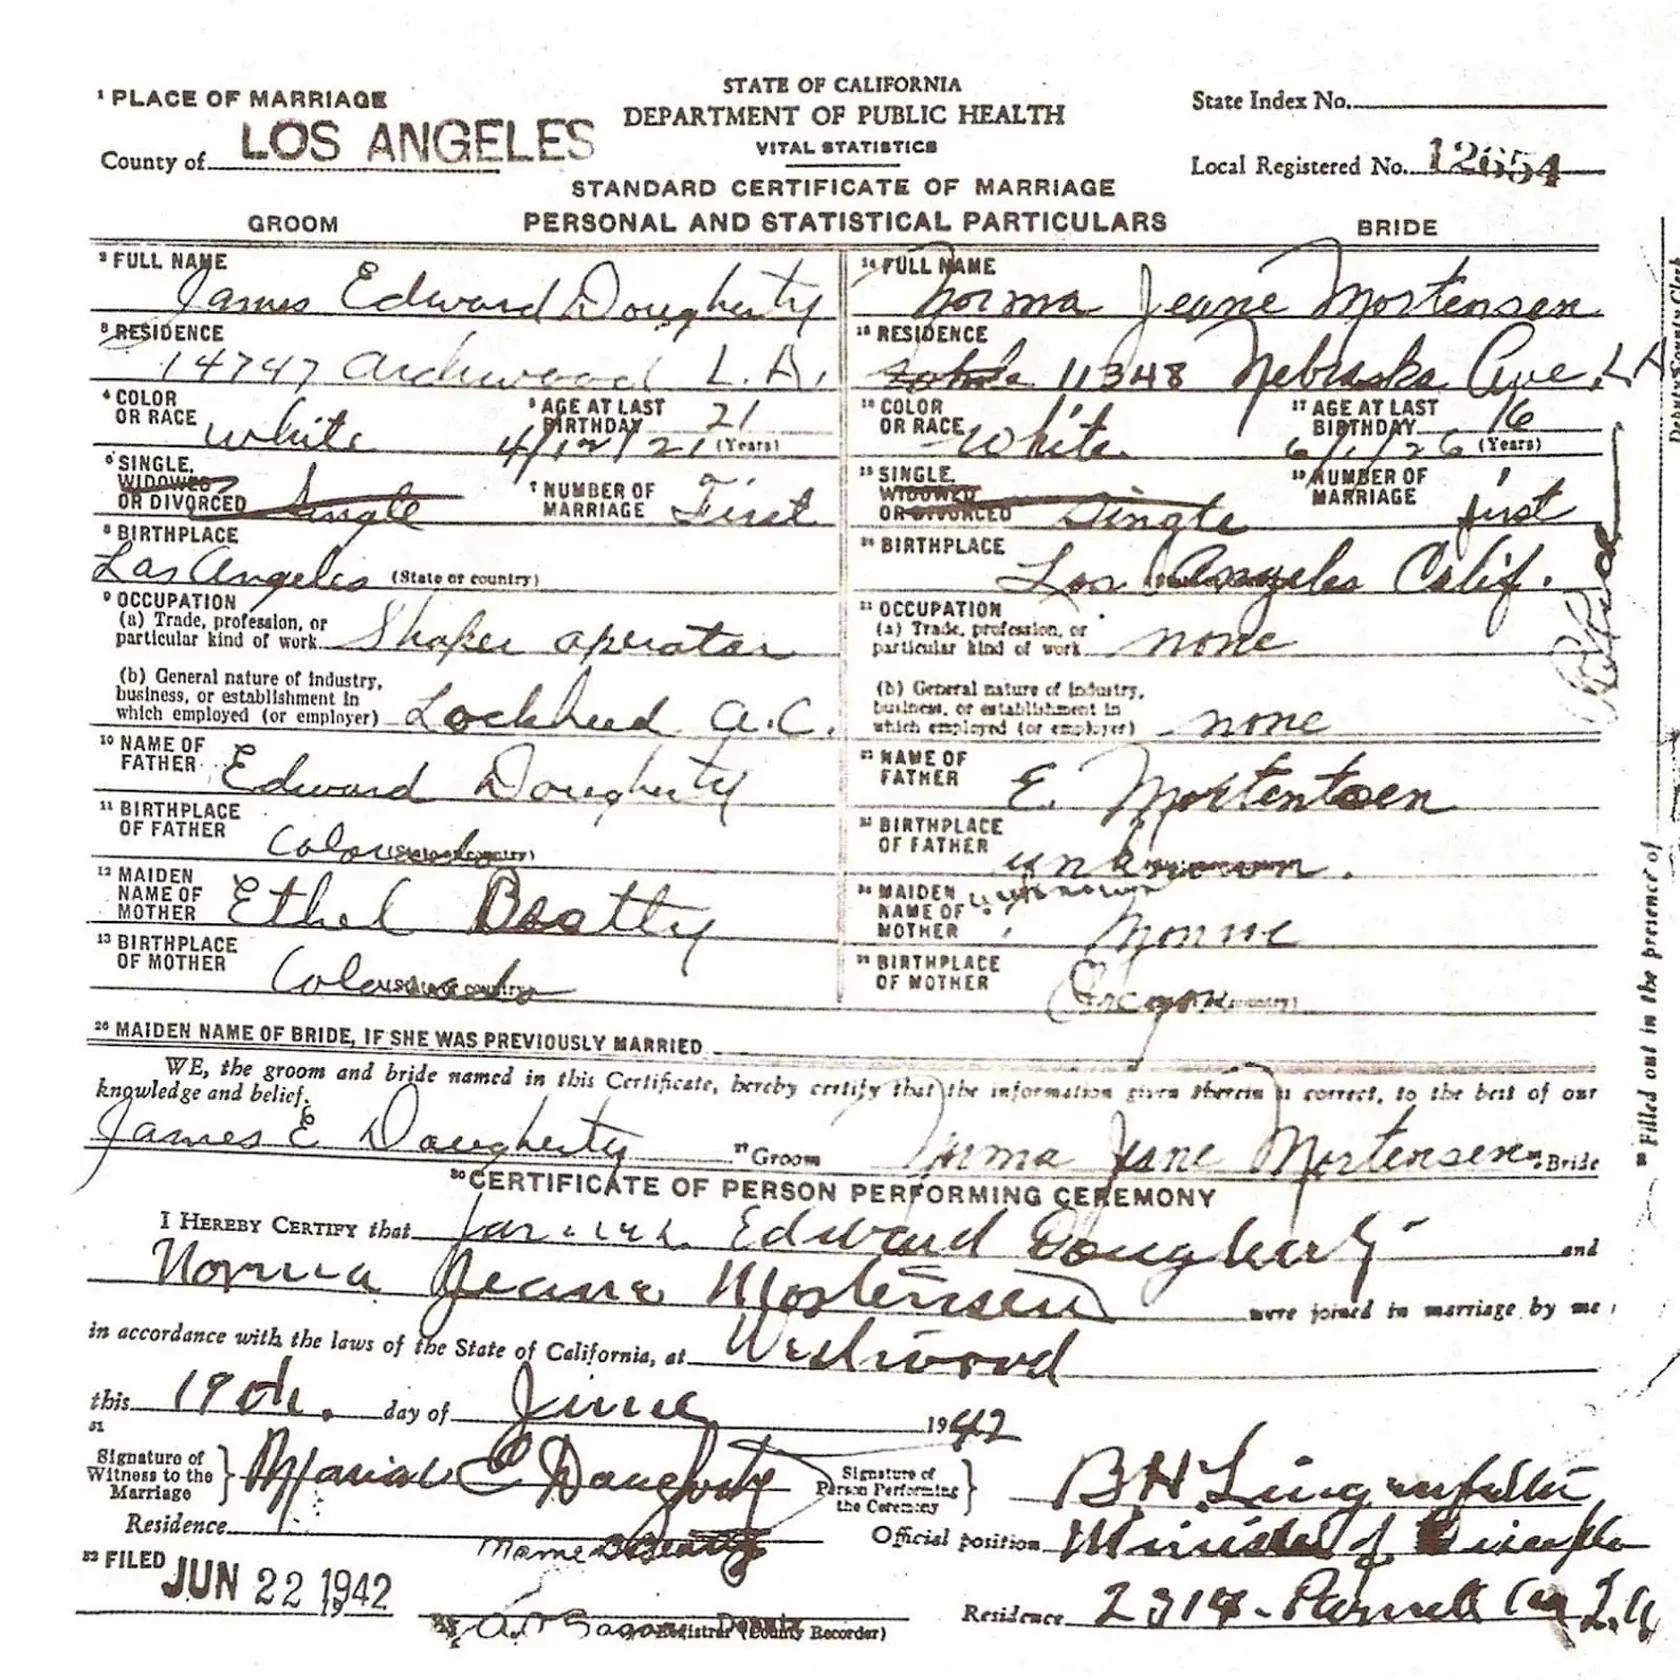 STATE OF CALIFORNIA
DEPARTMENT OF PUBLIC HEALTH
VITAL STATISTICS
1 PLACE OF MARRIAGE
County of LOS ANGELES
State Index No.
Local Registered No. 12654
STANDARD CERTIFICATE OF MARRIAGE
GROOM PERSONAL AND STATISTICAL PARTICULARS BRIDE
FULL NAME James Edward Dougherty
RESIDENCE
14747 Archwood L.A.
4 COLOR OR RACE White
AGE AT LAST BIRTHDAY 21 (Years)
4/12/21
SINGLE, WIDOWED OR DIVORCED Single
7 NUMBER OF MARRIAGE First
8 BIRTHPLACE
Los Angeles (State or country)
9 OCCUPATION
(a) Trade, profession, or
particular kind of work Shaper operator
(b) General nature of industry,
business, or establishment in
which employed (or employer) Lockheed A.C.
10 NAME OF FATHER Edward Dougherty
11 BIRTHPLACE OF FATHER Colorado
12 MAIDEN NAME OF MOTHER Ethel Beatty
13 BIRTHPLACE OF MOTHER Colorado
14 FULL NAME
Norma Jeane Mortensen
RESIDENCE
11348 Nebraska Ave. L.A.
16 COLOR OR RACE White
17 AGE AT LAST BIRTHDAY 16 (Years)
6/1/26
SINGLE, WIDOWED OR DIVORCED Single
19 NUMBER OF MARRIAGE first
20 BIRTHPLACE
Los Angeles Calif.
21 OCCUPATION
(a) Trade, profession, or
particular kind of work none
(b) General nature of industry,
business, or establishment in
which employed (or employer) none
22 NAME OF FATHER E. Mortensen
BIRTHPLACE OF FATHER unknown.
MAIDEN NAME OF MOTHER Monroe
BIRTHPLACE OF MOTHER Oregon
26 MAIDEN NAME OF BRIDE, IF SHE WAS PREVIOUSLY MARRIED
WE, the groom and bride named in this Certificate, hereby certify that the information given therein is correct, to the best of our
knowledge and belief.
James E Dougherty Groom Norma Jeane Mortensen Bride
CERTIFICATE OF PERSON PERFORMING CEREMONY
I HEREBY CERTIFY that James Edward Dougherty and
Norma Jeane Mortensen were joined in marriage by me
in accordance with the laws of the State of California, at Westwood
this 19th. day of June 1942
31
Signature of Witness to the Marriage Marion C Dougherty
Residence
Signature of Person Performing the Ceremony B H Lingenfelter
Official position Minister of
Residence 2314
32 FILED JUN 22 1942
Registrar (County Recorder)
Filled out in the presence of
Deputy County Clerk